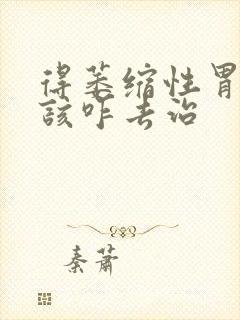 得萎缩性胃
该咋去治
秦萧